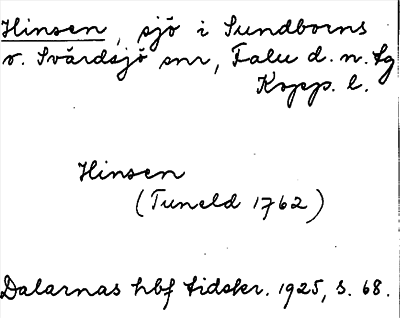 Hinsen, sjö i Sundborns
o. Svärdsjö snr, Falu d. n. tg
Kopp. l.
Hinsen
(Tuneld 1762)
Dalarnas hbf tidskr. 1925, s. 68.